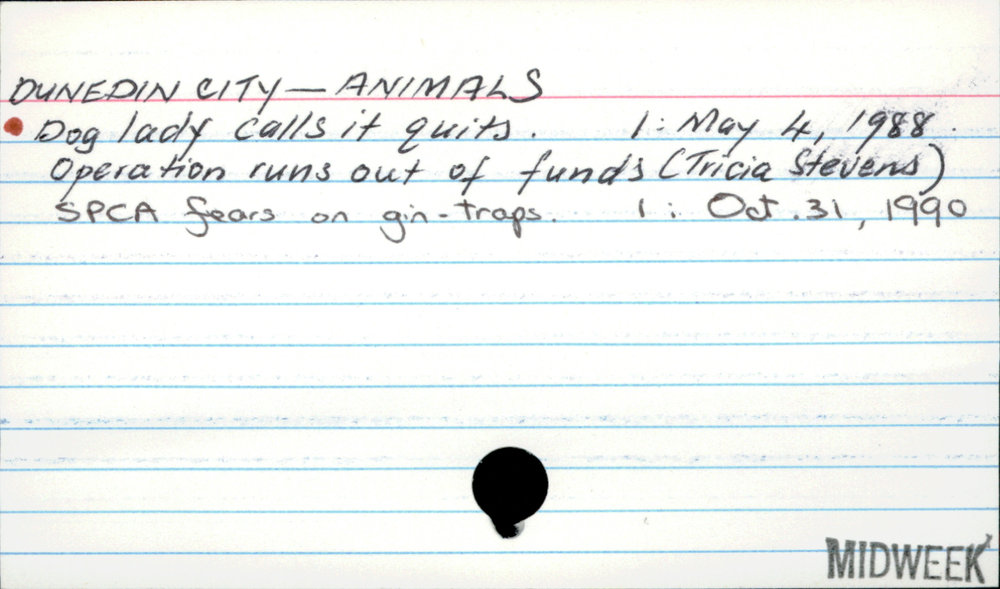 DUNEDIN CITY — ANIMALS
Dog lady calls it quits. 1: May 4, 1988.
Operation runs out of funds (Tricia Stevens)
SPCA fears on gin-traps. 1: Oct. 31, 1990
MIDWEEK